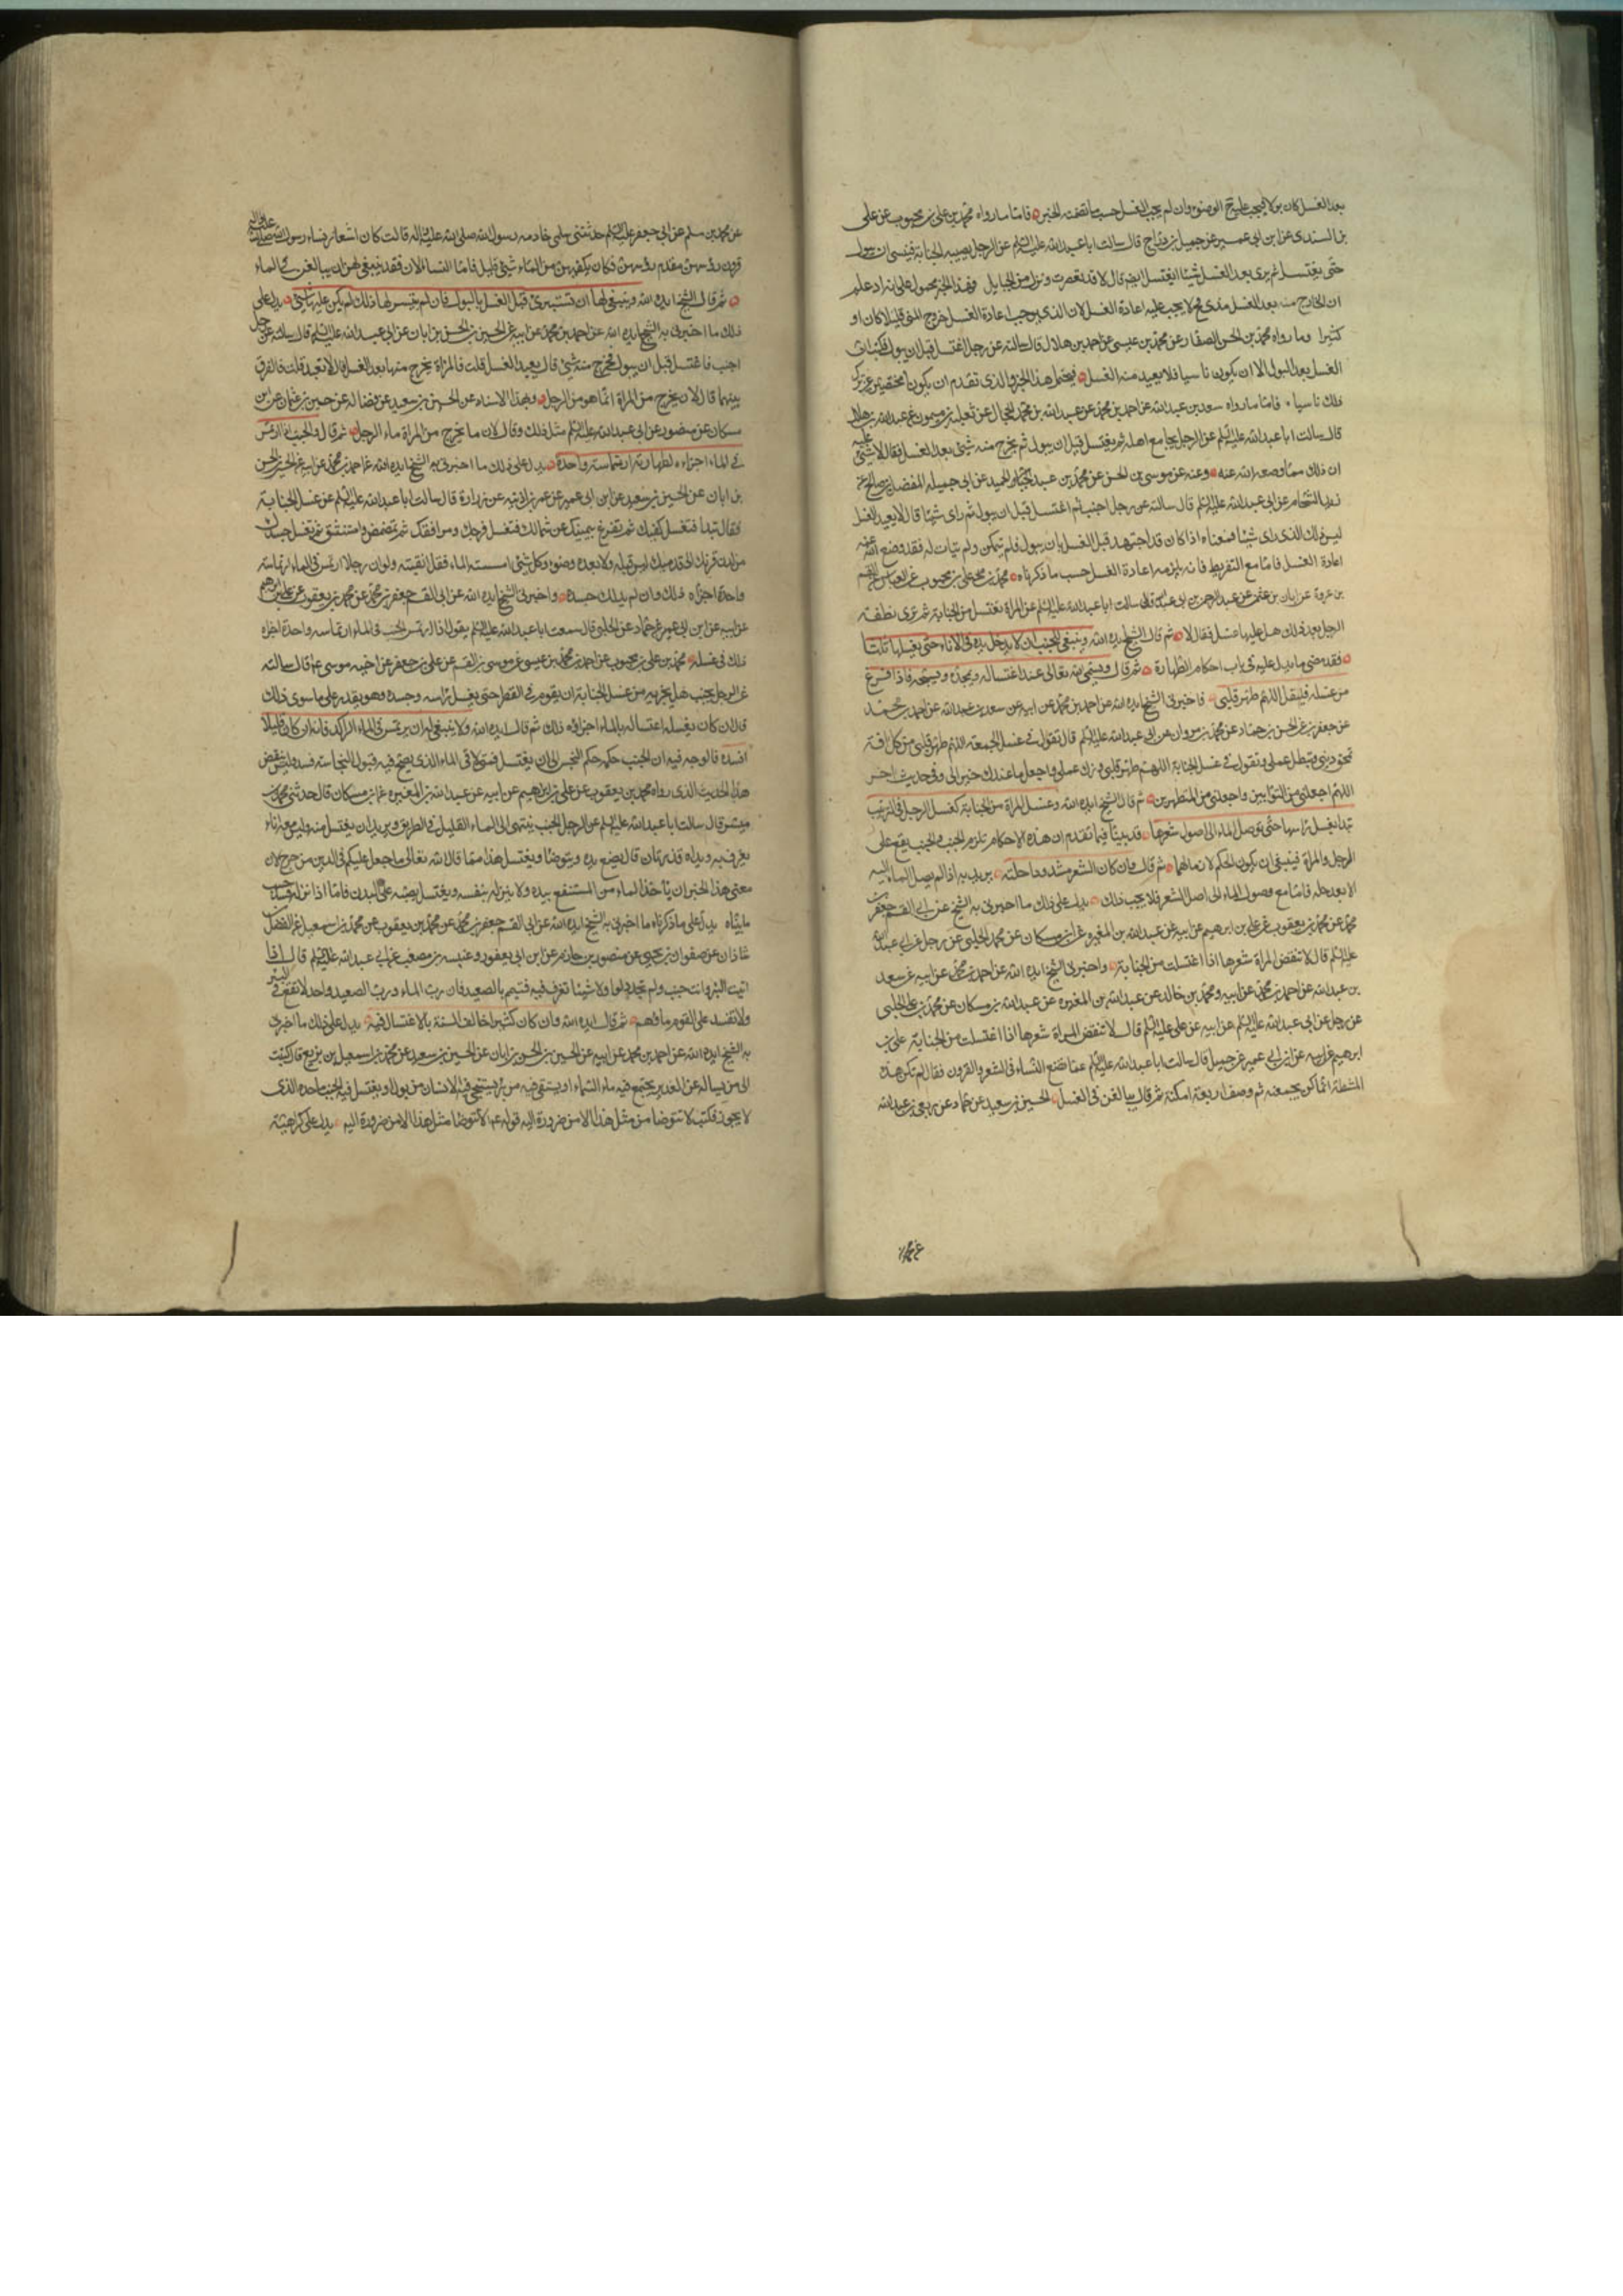 بعد الغسل كان بولا فيجب عليه ح الوضوء وان لم يجب الغسل حسب ما تضمنه الخبر فاما ما رواه محمد بن علي بن محبوب عن علي
بن السندي عن ابن ابي عمير عن جميل بن دراج قال سالت ابا عبد الله عليه السلم عن الرجل يصيبه الجنابة فينسى ان يبول
حتى يغتسل ثم يرى بعد الغسل شيئا ايغتسل ايضا قال لا قد تعصرت ونزل من الحبايل فهذا الخبر محمول على انه اذ علم
ان الخارج منه بعد الغسل مذي فح لا يجب عليه اعادة الغسل لان الذي يوجب اعادة الغسل خروج المني قليلا كان او
كثيرا وما رواه محمد بن الحسن الصفار عن محمد بن عيسى عن احمد بن هلال قال سالته عن رجل اغتسل قبل ان يبول فكتب ان
الغسل بعد البول الا ان يكون ناسيا فلا يعيد منه الغسل فيحتمل هذا الخبر والذي تقدم ان يكون مختصين بمن ترك
ذلك ناسيا فاما ما رواه سعد بن عبد الله عن احمد بن محمد عن عبد الله بن محمد الحجال عن ثعلبة بن ميمون عن عبد الله بن هلال
قال سالت ابا عبد الله عليه السلم عن الرجل يجامع اهله ثم يغتسل قبل ان يبول ثم يخرج منه شيئ بعد الغسل فقال لا شيئ عليه
ان ذلك مما وضعه الله عنه وعنه عن موسى بن الحسن عن محمد بن عبد الحميد عن ابي جميله المفضل بن صالح عن
زيد الشحام عن ابي عبد الله عليه السلم قال سالته عن رجل اجنب ثم اغتسل قبل ان يبول ثم راى شيئا قال لا يعيد الغسل
ليس ذلك الذي راى شيئا فمعناه اذا كان قد اجتهد قبل الغسل بان يبول فلم يتمكن ولم يتات له فقد وضع الله عنه
اعادة الغسل فاما مع التفريط فانه يلزمه اعادة الغسل حسب ما ذكرناه محمد بن علي بن محبوب عن العباس عن القسم
بن عروة عن ابان بن عثمن عن عبد الرحمن بن ابي عبد الله قال سالت ابا عبد الله عليه السلم عن المراة تغتسل من الجنابة ثم ترى نطفة
الرجل بعد ذلك هل عليها غسل فقال لا ثم قال الشيخ ايده الله وينبغي للجنب ان لا يدخل يده في الاناء حتى يغسلها ثلثا
فقد مضى ما يدل عليه في باب احكام الطهارة ثم قال ويسمي الله تعالى عند اغتساله ويمجده ويسبحه فاذا فرغ
من غسله فليقل اللهم طهر قلبي فاخبرني الشيخ ايده الله عن احمد بن محمد عن ابيه عن سعد بن عبد الله عن احمد بن محمد
عن جعفر بن عن الحسن بن حماد عن محمد بن مروان عن ابي عبد الله عليه السلم قال تقول في غسل الجمعة اللهم طهر قلبي من كل افة
تمحق ديني وتبطل عملي وتقول في غسل الجنابة اللهم طهر قلبي وزك عملي واجعل ما عندك خيرا لي وفي حديث اخر
اللهم اجعلني من التوابين واجعلني من المتطهرين ثم قال الشيخ ايده الله وغسل المراة من الجنابة كغسل الرجل في الترتيب
تبدا بغسل راسها حتى توصل الماء الى اصول شعرها قد بينا فيما تقدم ان هذه الاحكام تلزم الجنب والجنب يقع على
الرجل والمراة فينبغي ان يكون الحكم لازما لهما ثم قال وان كان الشعر مشدودا حلته يريد به اذا لم يصل الماء اليه
الا بعد حله فاما مع وصول الماء الى اصل الشعر فلا يجب ذلك يدل على ذلك ما اخبرني به الشيخ عن ابي القسم جعفر بن
محمد عن محمد بن يعقوب عن علي بن ابرهيم عن ابيه عن عبد الله بن المغيرة عن ابن مسكان عن محمد الحلبي عن رجل عن ابي عبد الله
عليه السلم قال لا تنقض المراة شعرها اذا اغتسلت من الجنابة واخبرني الشيخ ايده الله عن احمد بن محمد عن ابيه عن سعد
بن عبد الله عن احمد بن محمد عن ابيه ومحمد بن خالد عن عبد الله بن المغيره عن عبد الله بن مسكان عن محمد بن علي الحلبي
عن رجل عن ابي عبد الله عليه السلم عن ابيه عن علي عليه السلم قال لا تنقض المراة شعرها اذا اغتسلت من الجنابة علي بن
ابرهيم عن ابيه عن ابن ابي عمير عن جميل قال سالت ابا عبد الله عليه السلم عما تصنع النساء في الشعر والقرون فقال لم تكن هذه
المشطة انما كن يجمعنه ثم وصف اربعة امكنة ثم قال يبالغن في الغسل الحسين بن سعيد عن حماد عن ربعي بن عبد الله
عن محمد بن
عن محمد بن مسلم عن ابي جعفر عليه السلم حدثتني سلمى خادمه رسول الله صلى الله عليه واله قالت كان اشعار نساء رسول الله صلى الله عليه واله
قرون رؤسهن مقدم رؤسهن فكان يكفيهن من الماء شيئ قليل فاما النساء الان فقد ينبغي لهن ان يبالغن في الماء
ثم قال الشيخ ايده الله وينبغي لها ان تستبرئ قبل الغسل بالبول فان لم يتيسر لها ذلك لم يكن عليها شيئ يدل على
ذلك ما اخبرني به الشيخ ايده الله عن احمد بن محمد عن ابيه عن الحسين بن الحسن بن ابان عن ابي عبد الله عليه السلم قال سالته عن رجل
اجنب فاغتسل قبل ان يبول فخرج منه شيئ قال يعيد الغسل قلت فالمراة يخرج منها بعد الغسل قال لا تعيد قلت فما الفرق
بينهما قال لان يخرج من المراة انما هو من الرجل وبهذا الاسناد عن الحسين بن سعيد عن فضالة عن حسين بن عثمان عن ابن
مسكان عن منصور عن ابي عبد الله عليه السلم مثل ذلك وقال لان ما يخرج من المراة ماء الرجل ثم قال والجنب اذا ارتمس
في الماء اجزاه لطهارته ارتماسة واحدة يدل على ذلك ما اخبرني به الشيخ ايده الله عن احمد بن محمد عن ابيه عن الحسين بن الحسن
بن ابان عن الحسين بن سعيد عن ابن ابي عمير عن عمر بن اذينه عن زرارة قال سالت ابا عبد الله عليه السلم عن غسل الجنابة
فقال تبدا فتغسل كفيك ثم تفرغ بيمينك عن شمالك فتغسل فرجك ومرافقك ثم تمضمض واستنشق ثم تغسل جسدك
من لدن قرنك الى قدميك ليس قبله ولا بعده وضوء وكل شيئ امسسته الماء فقد انقيته ولو ان رجلا ارتمس في الماء ارتماسة
واحدة اجزاه ذلك وان لم يدلك جسده واخبرني الشيخ ايده الله عن ابي القسم جعفر بن محمد عن محمد بن يعقوب عن علي بن ابرهيم
عن ابيه عن ابن ابي عمير عن حماد عن الحلبي قال سمعت ابا عبد الله عليه السلم يقول اذا ارتمس الجنب في الماء ارتماسه واحدة اجزاه
ذلك في غسله محمد بن علي بن محبوب عن احمد بن محمد بن عيسى عن موسى بن القسم عن علي بن جعفر عن اخيه موسى ع قال سالته
عن الرجل يجنب هل يجزيه من غسل الجنابة ان يقوم في القطر حتى يغسل راسه وجسده وهو يقدر على ما سوى ذلك
قال ان كان يغسله اغتساله بالماء اجزاه ذلك ثم قال ايده الله ولا ينبغي له ان يرتمس في الماء الراكد فانه ان كان قليلا
افسده فالوجه فيه ان الجنب حكمه حكم النجس الى ان يغتسل فمتى لاقى الماء الذي يصح فيه قبول النجاسة فسد وليس ينقض
هذا الحديث الذي رواه محمد بن يعقوب عن علي بن ابرهيم عن ابيه عن عبد الله بن المغيره عن ابن مسكان قال حدثني محمد بن
ميسر قال سالت ابا عبد الله عليه السلم عن الرجل الجنب ينتهى الى الماء القليل في الطريق ويريد ان يغتسل منه وليس معه اناء
يغرف به ويداه قذرتان قال يضع يده ويتوضا ويغتسل هذا مما قال الله تعالى ما جعل عليكم في الدين من حرج لان
معنى هذا الخبر ان ياخذ الماء من المستنقع بيده ولا ينزله بنفسه ويغتسل بصبه على البدن فاما اذا نزله فسد حسب
ما بيناه يدل على ما ذكرناه ما اخبرني به الشيخ ايده الله عن ابي القسم جعفر بن محمد عن محمد بن يعقوب عن محمد بن اسمعيل عن الفضل بن
شاذان عن صفوان بن يحيى عن منصور بن حازم عن ابن ابي يعفور وعنبسه بن مصعب عن ابي عبد الله عليه السلم قال اذا
اتيت البئر وانت جنب ولم تجد دلوا ولا شيئا تغرف فيه فتيمم بالصعيد فان رب الماء ورب الصعيد واحد لا تقع في البئر
ولا تفسد على القوم ماؤهم ثم قال ايده الله وان كان كثيرا خالف السنة بالاغتسال فيه يدل على ذلك ما اخبرني
به الشيخ ايده الله عن احمد بن محمد عن ابيه عن الحسين بن الحسن بن ابان عن الحسين بن سعيد عن محمد بن اسمعيل بن بزيع قال كتبت
الى من يساله عن الغدير يجتمع فيه ماء السماء او يستقى فيه من بئر يستنجي فيه الانسان من بول او يغتسل فيه الجنب ما حده الذي
لا يجوز فكتب لا تتوضا من مثل هذا الا من ضرورة اليه قوله ع لا تتوضا مثل هذا الا من ضرورة اليه يدل على كراهية